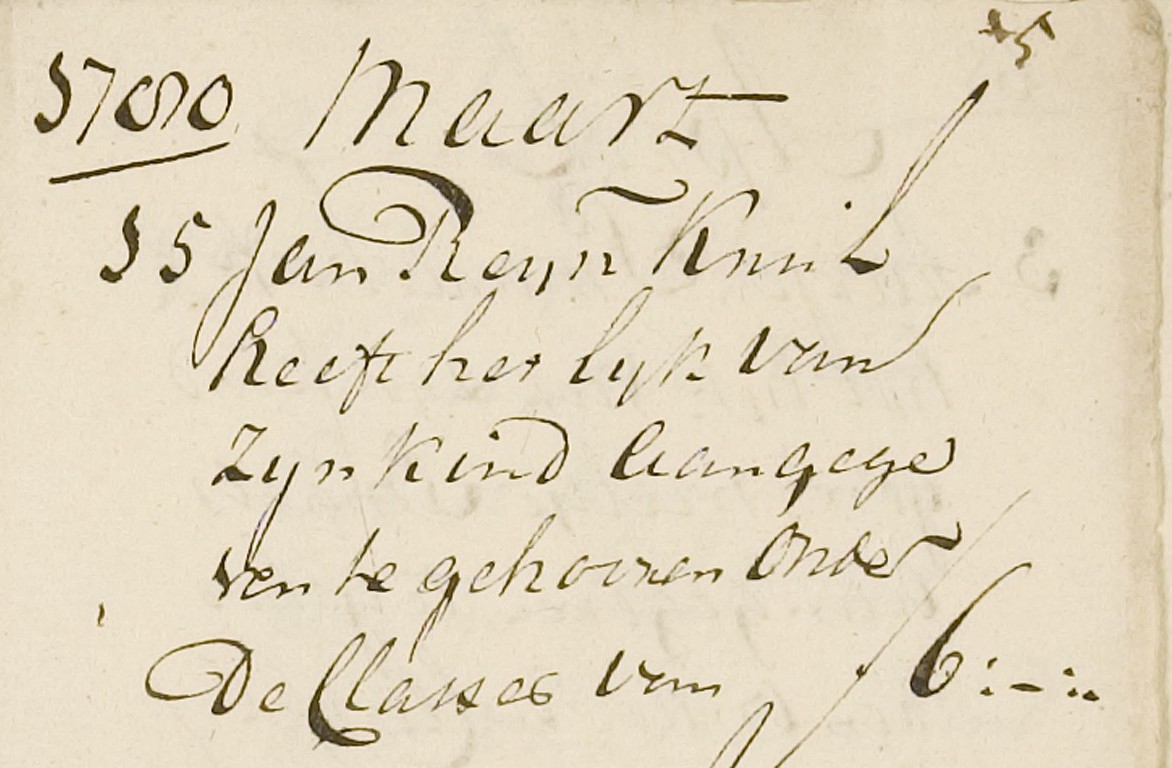 1780 Maart
15 Jan Reyn Kruil
heeft het lyk van
Zyn Kind aangege
ven te gehooren onder
De Classes van ƒ 6:-:-